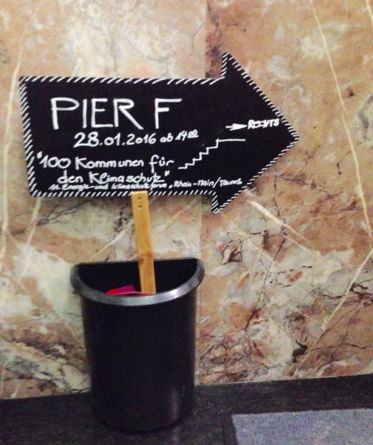 PIER F
28.01.2016 ab 14⁰⁰
→ RECHTS
"100 Kommunen für
den Klimaschutz"
11. Energie- und Klimaschutzforum „Rhein-Main/Taunus